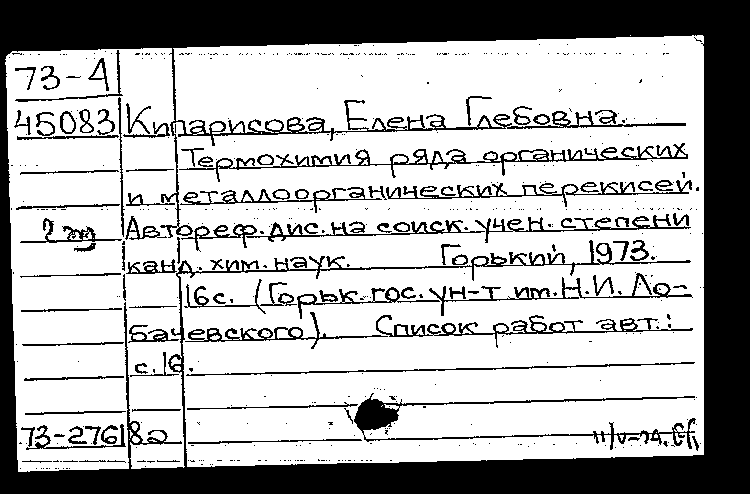 73-4
45083 Кипарисова, Елена Глебовна.
Термохимия ряда органических
и металлоорганических перекисей.
2 экз Автореф. дис. на соиск. учен. степени
канд. хим. наук. Горький, 1973.
16 с. (Горьк. гос. ун-т им. Н.И. Ло-
бачевского). Список работ авт.:
с. 16.
73-27618а